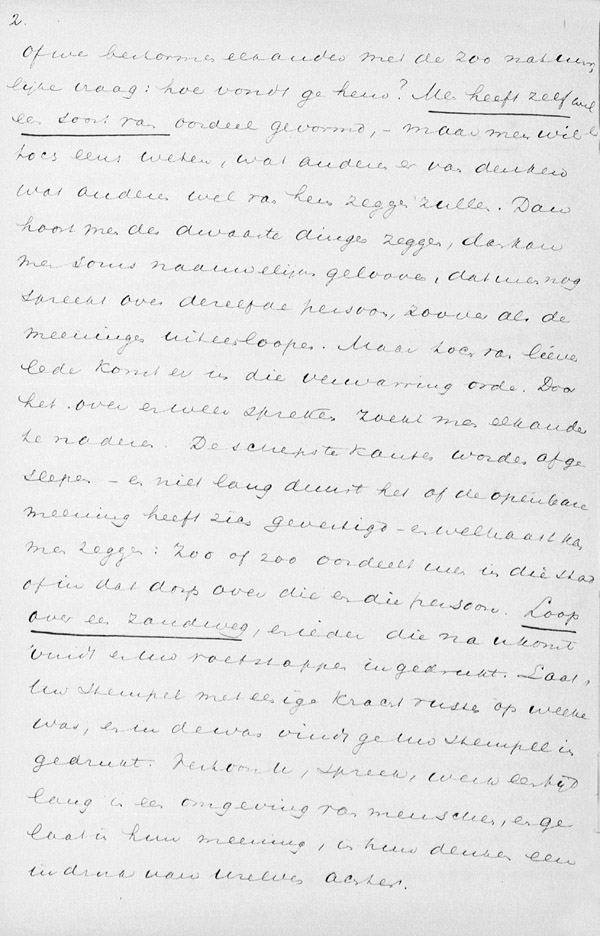 2.
Of we bestormen elkander met de zoo natuur-
lijke vraag: hoe vondt ge hem? Men heeft zelf wel
een soort van oordeel gevormd, – maar men wil
toch eens weten, wat anderen er van denken
wat anderen wel van hem zeggen zullen. Dan
hoort men de dwaaste dingen zeggen, dan kan
men soms naauwelijks gelooven, dat men nog
spreekt over dezelfde persoon, zoover als de
meeningen uiteenloopen. Maar toch van lieve
lede komt er in die verwarring orde. Door
het over en weer spreken zoekt men elkander
te naderen. De scherpste kanten worden afge
slepen – en niet lang duurt het of de openbare
meening heeft zich gevestigd – en welhaast kan
men zeggen: zoo of zoo oordeelt men in die stad
of in dat dorp over die en die persoon. Loop
over een zandweg, en ieder die na u komt
vindt er uw voetstappen ingedrukt. Laat,
uw stempel met eenige kracht rusten op weeke
was, en in de was vindt ge uw stempel in
gedrukt. Vertoon u, spreek, werk een tijd
lang in een omgeving van menschen, en ge
laat in hun meening, in hun denken een
indruk van uzelven achter.